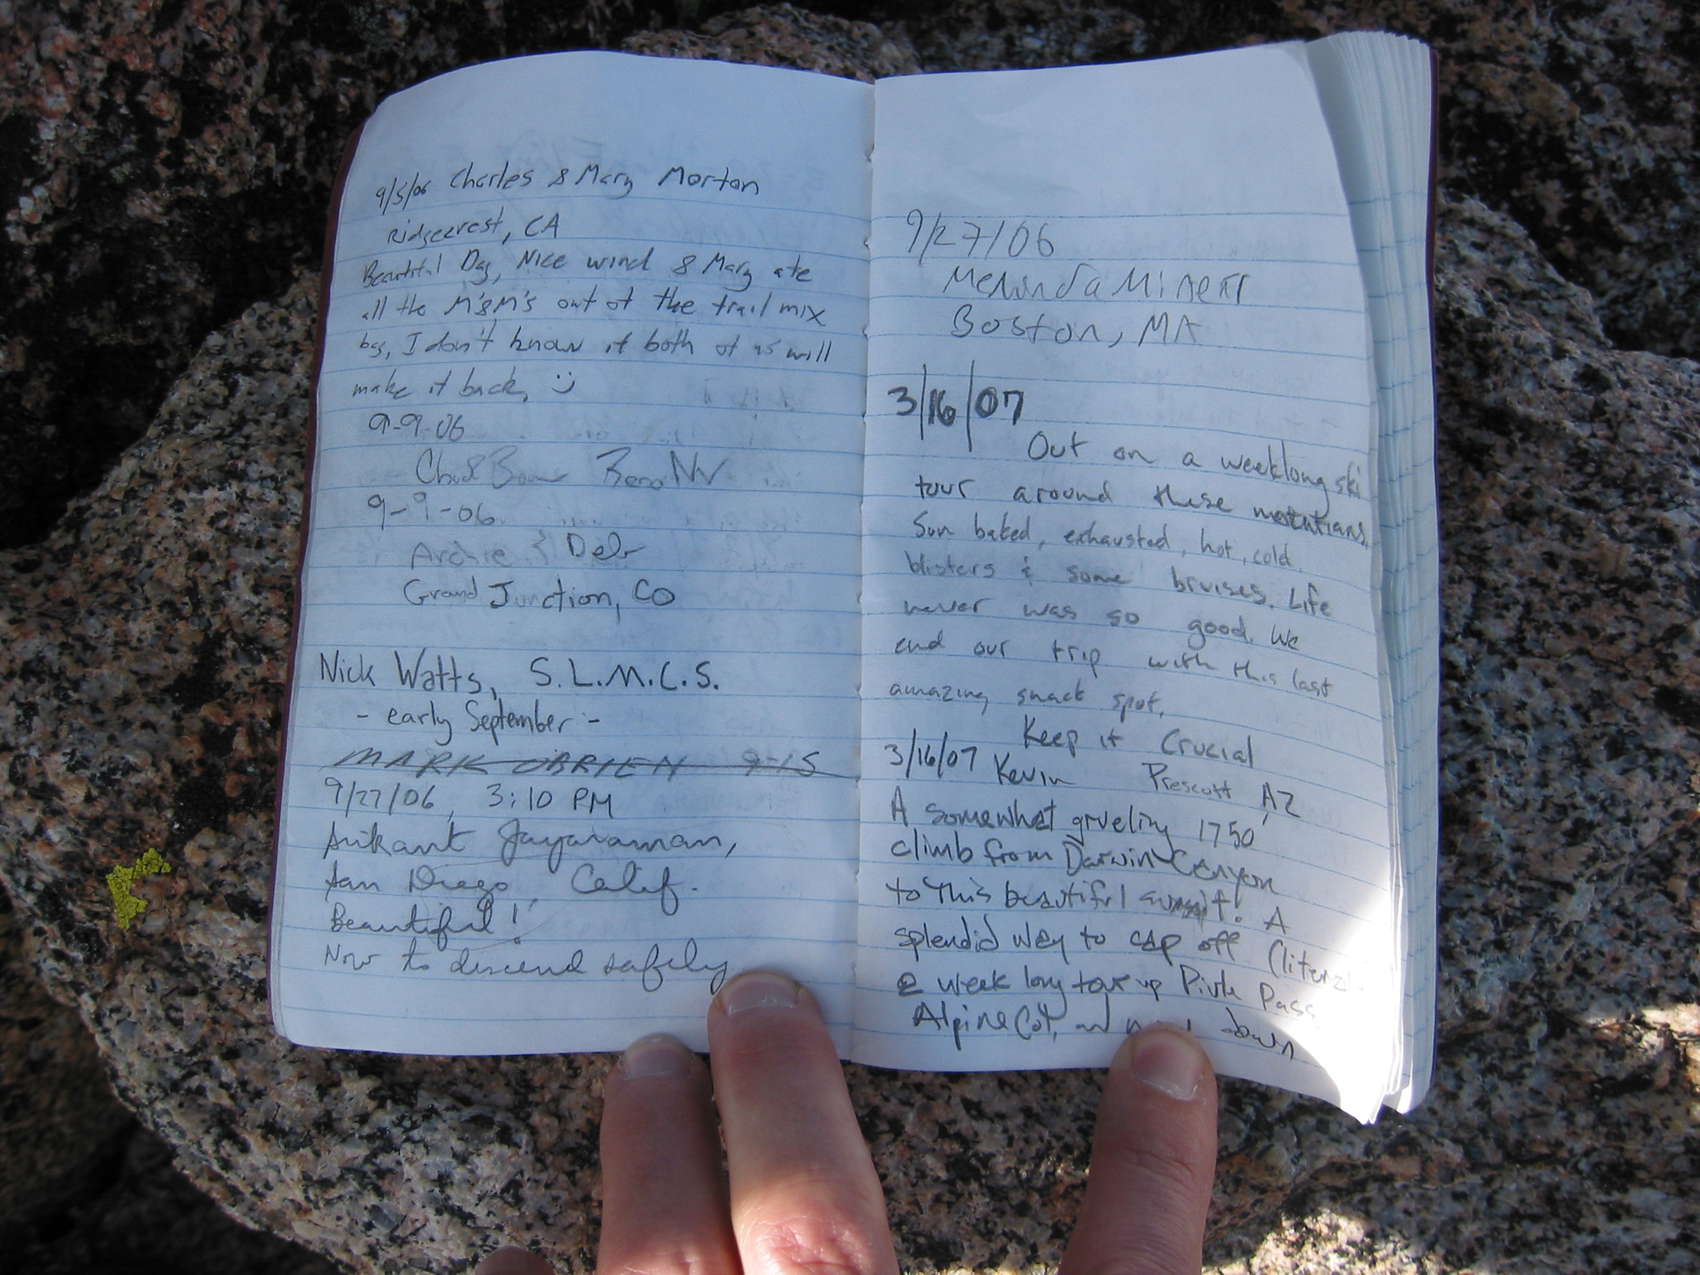 9/5/06 Charles & Mary Morton
Ridgecrest, CA
Beautiful Day, Nice wind & Mary ate
all the M&M's out of the trail mix
bag, I don't know if both of us will
make it back, :)
9-9-06
Reno NV
9-9-06
Archie & Deb
Grand Junction, CO
Nick Watts, S.L.M.C.S.
- early September -
MARK OBRIEN 9-15
9/27/06, 3:10 PM
Jayaraman,
San Diego, Calif.
Beautiful!
Now to descend safely
9/27/06
Boston, MA
3/16/07
Out on a weeklong ski
tour around these mountians.
Sun baked, exhausted, hot, cold
blisters & some bruises. Life
never was so good. We
end our trip with this last
amazing snack spot.
Keep it Crucial
Kevin Prescott, AZ
3/16/07
A somewhat grueling 1750'
climb from Darwin Canyon
to this beautiful summit! A
splendid way to cap off (literal
a week long tour up Piute Pass
Alpine Col, and down